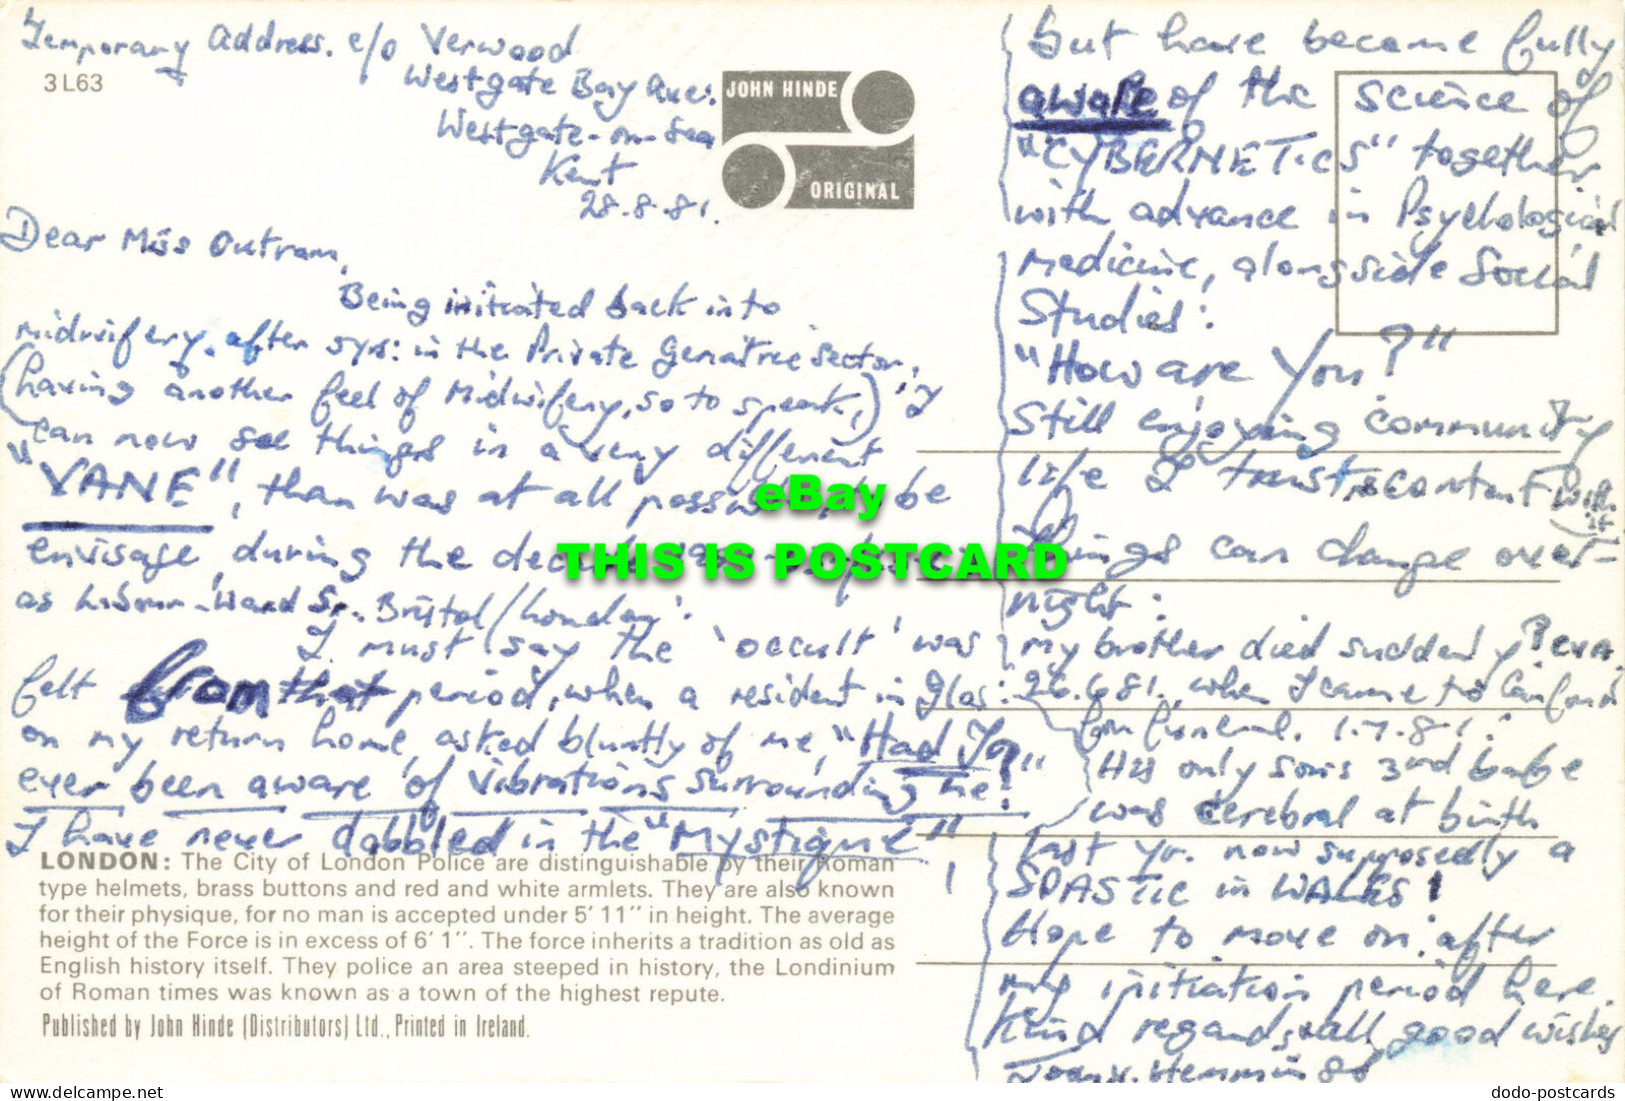 Temporary Address. c/o Verwood
Westgate Bay Ave:
Westgate-on-Sea
Kent
28.8.81.
3L63
JOHN HINDE
ORIGINAL
Dear Miss Outram,
Being initiated back into
midwifery, after 5yrs: in the Private Geriatric Sector,
(having another feel of Midwifery, so to speak,) I
can now see things in a very different
"VANE", than was at all possible to be
envisage, during the decade
as Labour-Ward Sr. Bristol/London.
I must say the 'occult' was
felt from that period, when a resident in Glos:
on my return home, asked bluntly of me, "Had You
ever been aware of vibrations surrounding me?"
I have never dabbled in the "Mystique"!
LONDON: The City of London Police are distinguishable by their Roman
type helmets, brass buttons and red and white armlets. They are also known
for their physique, for no man is accepted under 5' 11" in height. The average
height of the Force is in excess of 6' 1". The force inherits a tradition as old as
English history itself. They police an area steeped in history, the Londinium
of Roman times was known as a town of the highest repute.
Published by John Hinde (Distributors) Ltd., Printed in Ireland.
but have become fully
aware of the science of
"CYBERNETICS" together
with advance in Psychological
medicine, alongside Social
Studies:
"How are You?"
Still enjoying community
life I trust, & content with it
Things can change over-
night:
my brother died suddenly
26.6.81. when I came to
for funeral. 1.7.81.
His only sons 3rd babe
was cerebral at birth
last yr. now supposedly a
SPASTIC in WALES!
Hope to move on after
my initiation period here.
Kind regards, & all good wishes
Hemmings
eBay
THIS IS POSTCARD
dodo-postcards